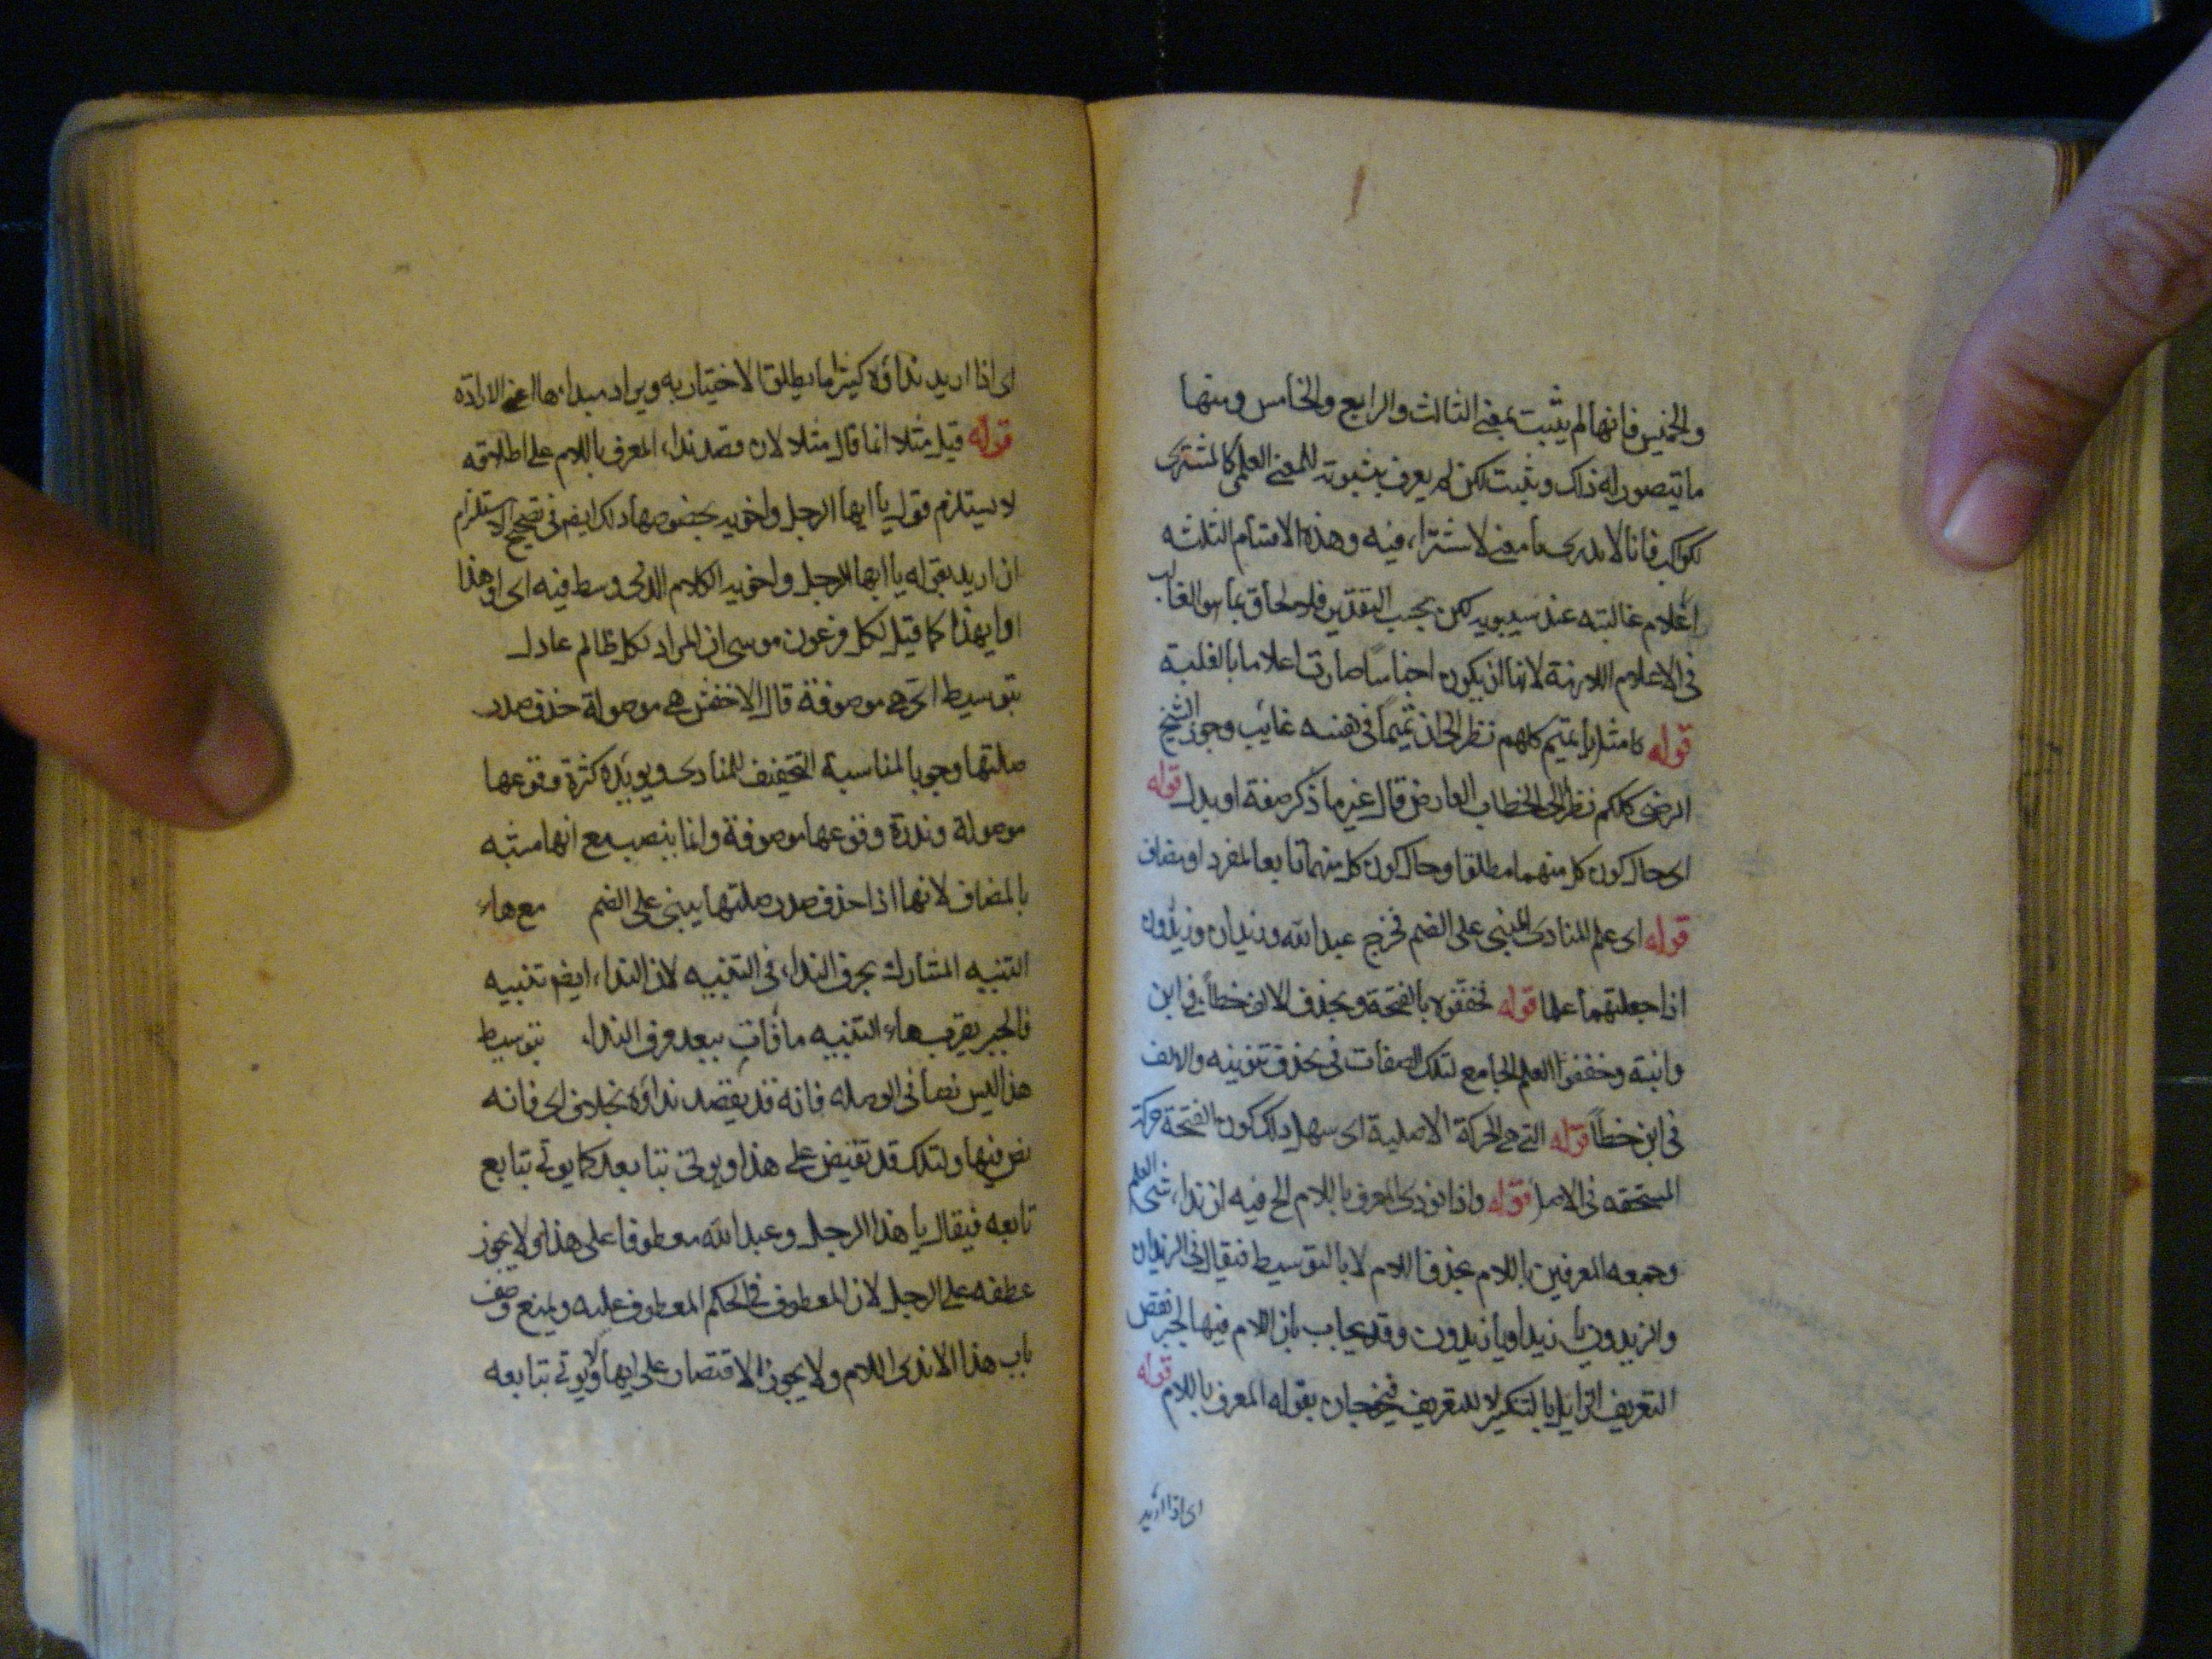 والخميس فانها لم يثبت بمعنى الثالث والرابع والخامس ومنها
ما يتصور له ذلك ويثبت لكن لم يعرف بثبوته للمعنى العلمى كالمشترى
لكوكب فانا لا ندرى ما معنى الاشتراء فيه وهذه الاقسام الثلثه
اعلام غالبته عند سيبويه لكن بحسب التقدير
فى الاعلام اللازمة لانها اجناسا صارت اعلاما بالغلبته
قوله كا مثل يا تميم كلهم نظرا الى تميما غايب وجوز الشيخ
الرضى كلكم نظرا الى الخطاب العارض قال غير ما ذكر صفة او بدل قوله
اى حال كون كل منهما مطلقا وحال كون كل منهما تابعا لمفرد او مضاف
قوله اى علم المنادى المبنى على الضم فخرج عبد الله وزيدان وزيدون
اذا جعلتهما علما قوله خففوه بالفتحة وبحذف الالف خطا فى ابن
وابنة وخففوا العلم الجامع لتلك الصفات فى بحذف تنوينه والالف
فى ابن خطا قوله التى هى الحركة الاصلية اى سهل ذلك كون الفتحة حركة
المستحقه فى الاصل قوله واذا نودى المعرف باللام الخ فيه ان نداء مثنى العلم
وجمعه المعرفين باللام بحذف اللام لا بالتوسيط فيقال فى الزيدان
والزيدون يا زيدا ويا زيدون وقد يجاب بان اللام فيها لجبر نقص
التعريف الزايل بالتنكير لا للتعريف فيخرجان بقوله المعرف باللام قوله
اى اذا اريد
اى اذا اريد نداؤه كثيرا ما يطلق الاختيار به ويراد مبداءها اعنى الارادة
قوله قيل مثلا انما قال مثلا لان قصد نداء المعرف باللام على اطلاقه
لا يستلزم قول يا ايها الرجل واخويه بخصوصها ذلك ايضم فى تصحيح الاستلزام
ان اريد بقوله يا ايها الرجل واخويه الكلام الذى وسط فيه اى او هذا
او ايهذا كما قيل لكل فرعون موسى ان المراد لكل ظالم عادل
بتوسيط اى هى موصوفة قال الاخفش هى موصولة حذف صدر
صلتها وجوبا لمناسبة التخفيف للمنادى ويويده كثرة وقوعها
موصولة وندرة وقوعها موصوفة وانما ينصب مع انها مشبه
بالمضاف لانها اذا حذف صدر صلتها يبنى على الضم مع هاء
التنبيه المشارك بحرف النداء فى التنبيه لان النداء ايضم تنبيه
فالجبر بقرب هاء التنبيه ما فات ببعد حرف النداء بتوسيط
هذا ليس نصا فى الوصله فانه قد يقصد نداؤه بخلاف اى فانه
نص فيها ولذلك قد يقتصر على هذا ويوتى بتابعه كما يوتى بتابع
تابعه فيقال يا هذا الرجل وعبد الله معطوفا على هذا ولا يجوز
عطفه على الرجل لان المعطوف فى الحكم المعطوف عليه ويمنع وصف
باب هذا الا بذى اللام ولا يجوز الاقتصار على ايها ولا يوتى بتابعه